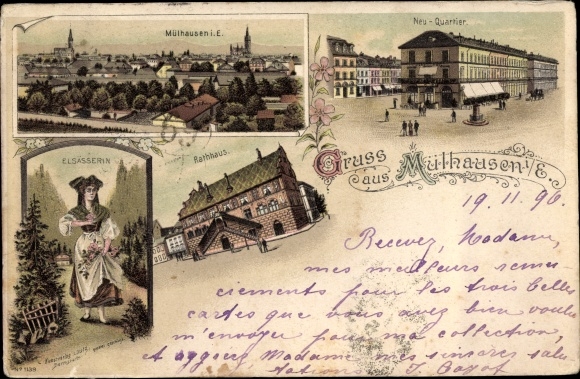 Mülhausen i. E.
Neu-Quartier.
ELSÄSSERIN
Rathhaus.
Gruss
aus Mülhausen i/E.
19. 11. 96.
Recevez, Madame,
mes meilleurs remer-
ciements pour les trois belles
cartes que vous avez bien voulu
m'envoyer pour ma collection,
et agréez, Madame, mes sincères salu-
tations